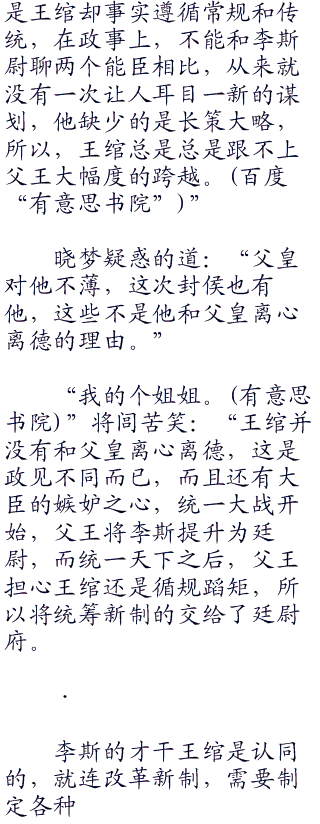 是王绾却事实遵循常规和传
统，在政事上，不能和李斯
尉聊两个能臣相比，从来就
没有一次让人耳目一新的谋
划，他缺少的是长策大略，
所以，王绾总是总是跟不上
父王大幅度的跨越。(百度
“有意思书院”)”
晓梦疑惑的道：“父皇
对他不薄，这次封侯也有
他，这些不是他和父皇离心
离德的理由。”
“我的个姐姐。(有意思
书院)”将闾苦笑：“王绾并
没有和父皇离心离德，这是
政见不同而已，而且还有大
臣的嫉妒之心，统一大战开
始，父王将李斯提升为廷
尉，而统一天下之后，父王
担心王绾还是循规蹈矩，所
以将统筹新制的交给了廷尉
府。
.
李斯的才干王绾是认同
的，就连改革新制，需要制
定各种